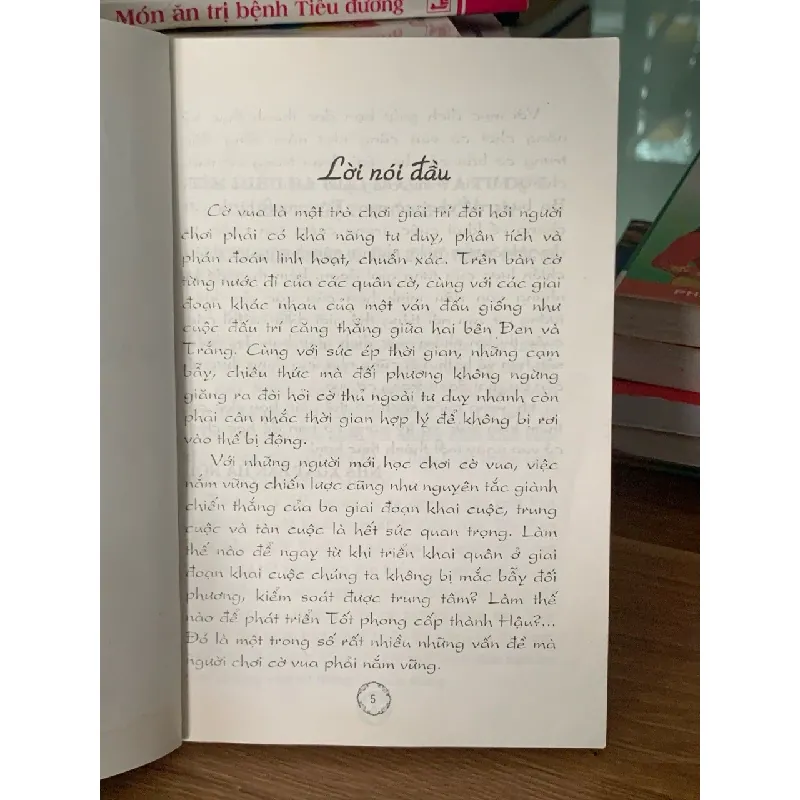 Món ăn trị bệnh Tiểu đường
Lời nói đầu
Cờ vua là một trò chơi giải trí đòi hỏi người
chơi phải có khả năng tư duy, phân tích và
phán đoán linh hoạt, chuẩn xác. Trên bàn cờ
từng nước đi của các quân cờ, cùng với các giai
đoạn khác nhau của một ván đấu giống như
cuộc đấu trí căng thẳng giữa hai bên Đen và
Trắng. Cùng với sức ép thời gian, những cạm
bẫy, chiêu thức mà đối phương không ngừng
giăng ra đòi hỏi cờ thủ ngoài tư duy nhanh còn
phải cân nhắc thời gian hợp lý để không bị rơi
vào thế bị động.
Với những người mới học chơi cờ vua, việc
nắm vững chiến lược cũng như nguyên tắc giành
chiến thắng của ba giai đoạn khai cuộc, trung
cuộc và tàn cuộc là hết sức quan trọng. Làm
thế nào để ngay từ khi triển khai quân ở giai
đoạn khai cuộc chúng ta không bị mắc bẫy đối
phương, kiểm soát được trung tâm? Làm thế
nào để phát triển Tốt phong cấp thành Hậu?...
Đó là một trong số rất nhiều những vấn đề mà
người chơi cờ vua phải nắm vững.
5